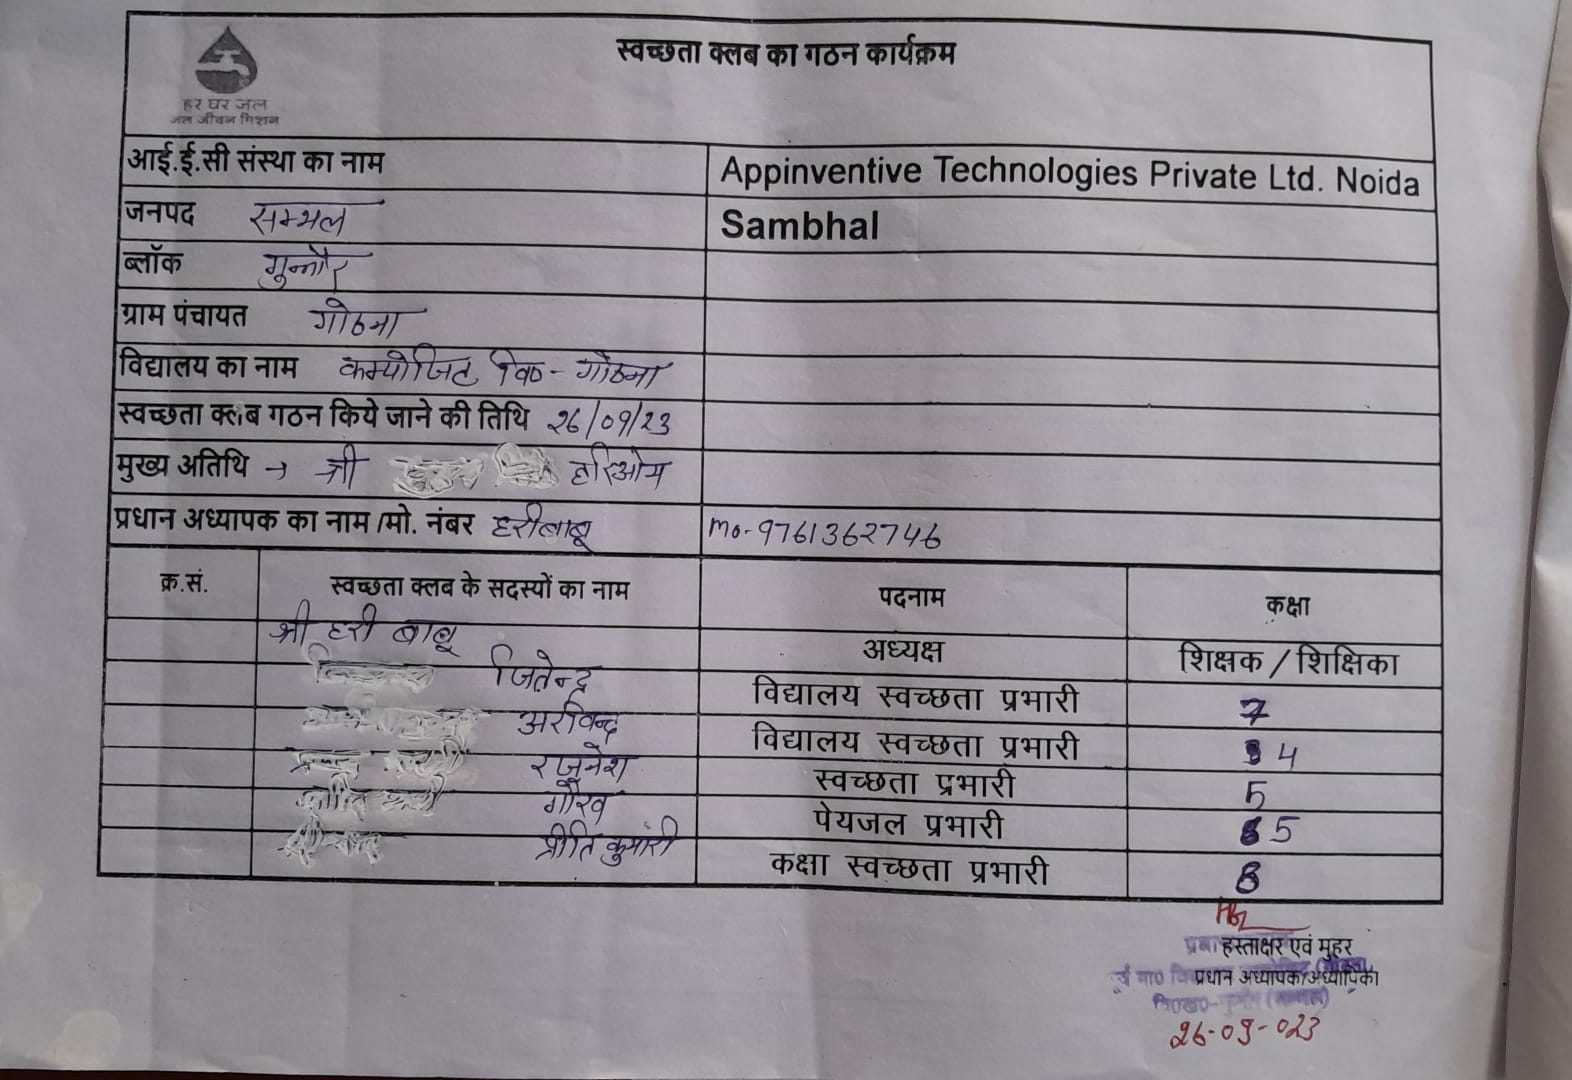 हर घर जल
जल जीवन मिशन
स्वच्छता क्लब का गठन कार्यक्रम
आई.ई.सी संस्था का नाम Appinventive Technologies Private Ltd. Noida
जनपद सम्भल Sambhal
ब्लॉक गुन्नौर
ग्राम पंचायत गोठना
विद्यालय का नाम कम्पोजिट वि०- गोठना
स्वच्छता क्लब गठन किये जाने की तिथि 26/09/23
मुख्य अतिथि → श्री हरिओम
प्रधान अध्यापक का नाम /मो. नंबर हरीबाबू mo-9761362746
क्र.सं. स्वच्छता क्लब के सदस्यों का नाम पदनाम कक्षा
श्री हरी बाबू अध्यक्ष शिक्षक / शिक्षिका
जितेन्द्र विद्यालय स्वच्छता प्रभारी 7
अरविन्द विद्यालय स्वच्छता प्रभारी 4
रजनेश स्वच्छता प्रभारी 5
गौरव पेयजल प्रभारी 5
प्रीति कुमारी कक्षा स्वच्छता प्रभारी 8
हस्ताक्षर एवं मुहर
प्रधान अध्यापक/अध्यापिका
26-09-023